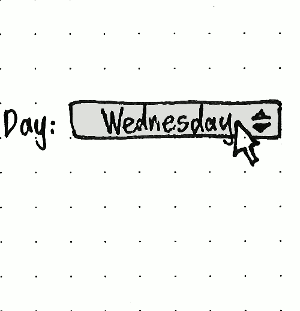 Day: Wednesday